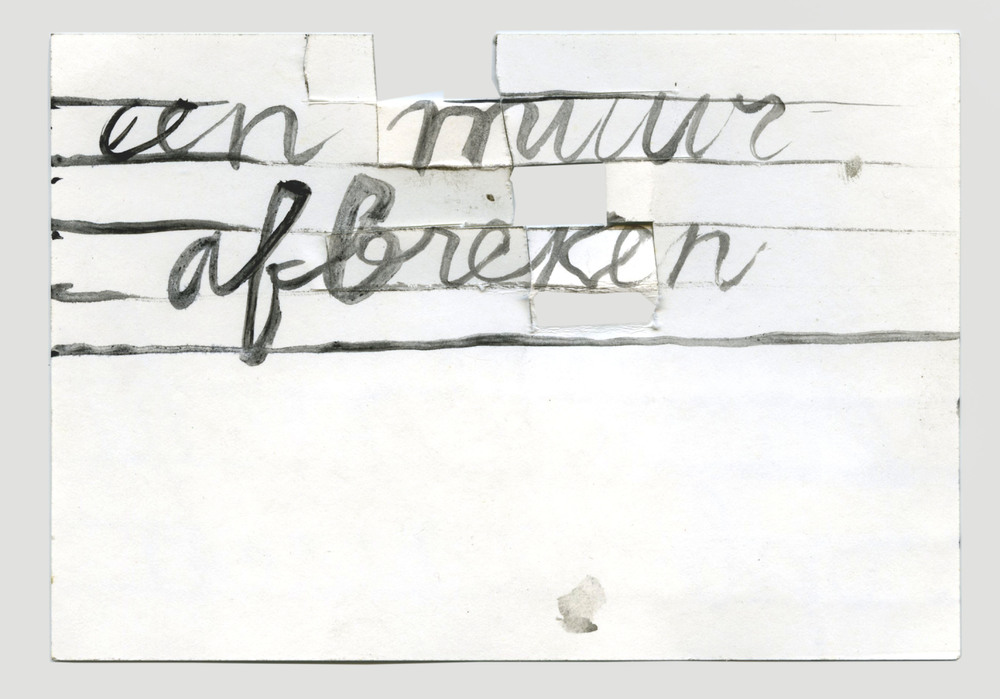 een muur
afbreken